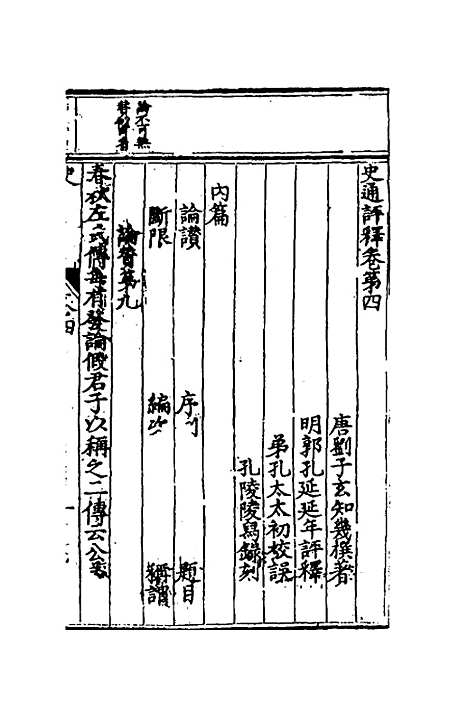 史通評釋卷第四
唐劉子玄知幾撰著
明郭孔延延年評釋
弟孔太太初校誤
孔陵陵寫錄刻
內篇
論讚 序例 題目
斷限 編次 稱謂
論讚第九
春秋左氏傳每有發論假君子以稱之二傳云公羊
論不可無